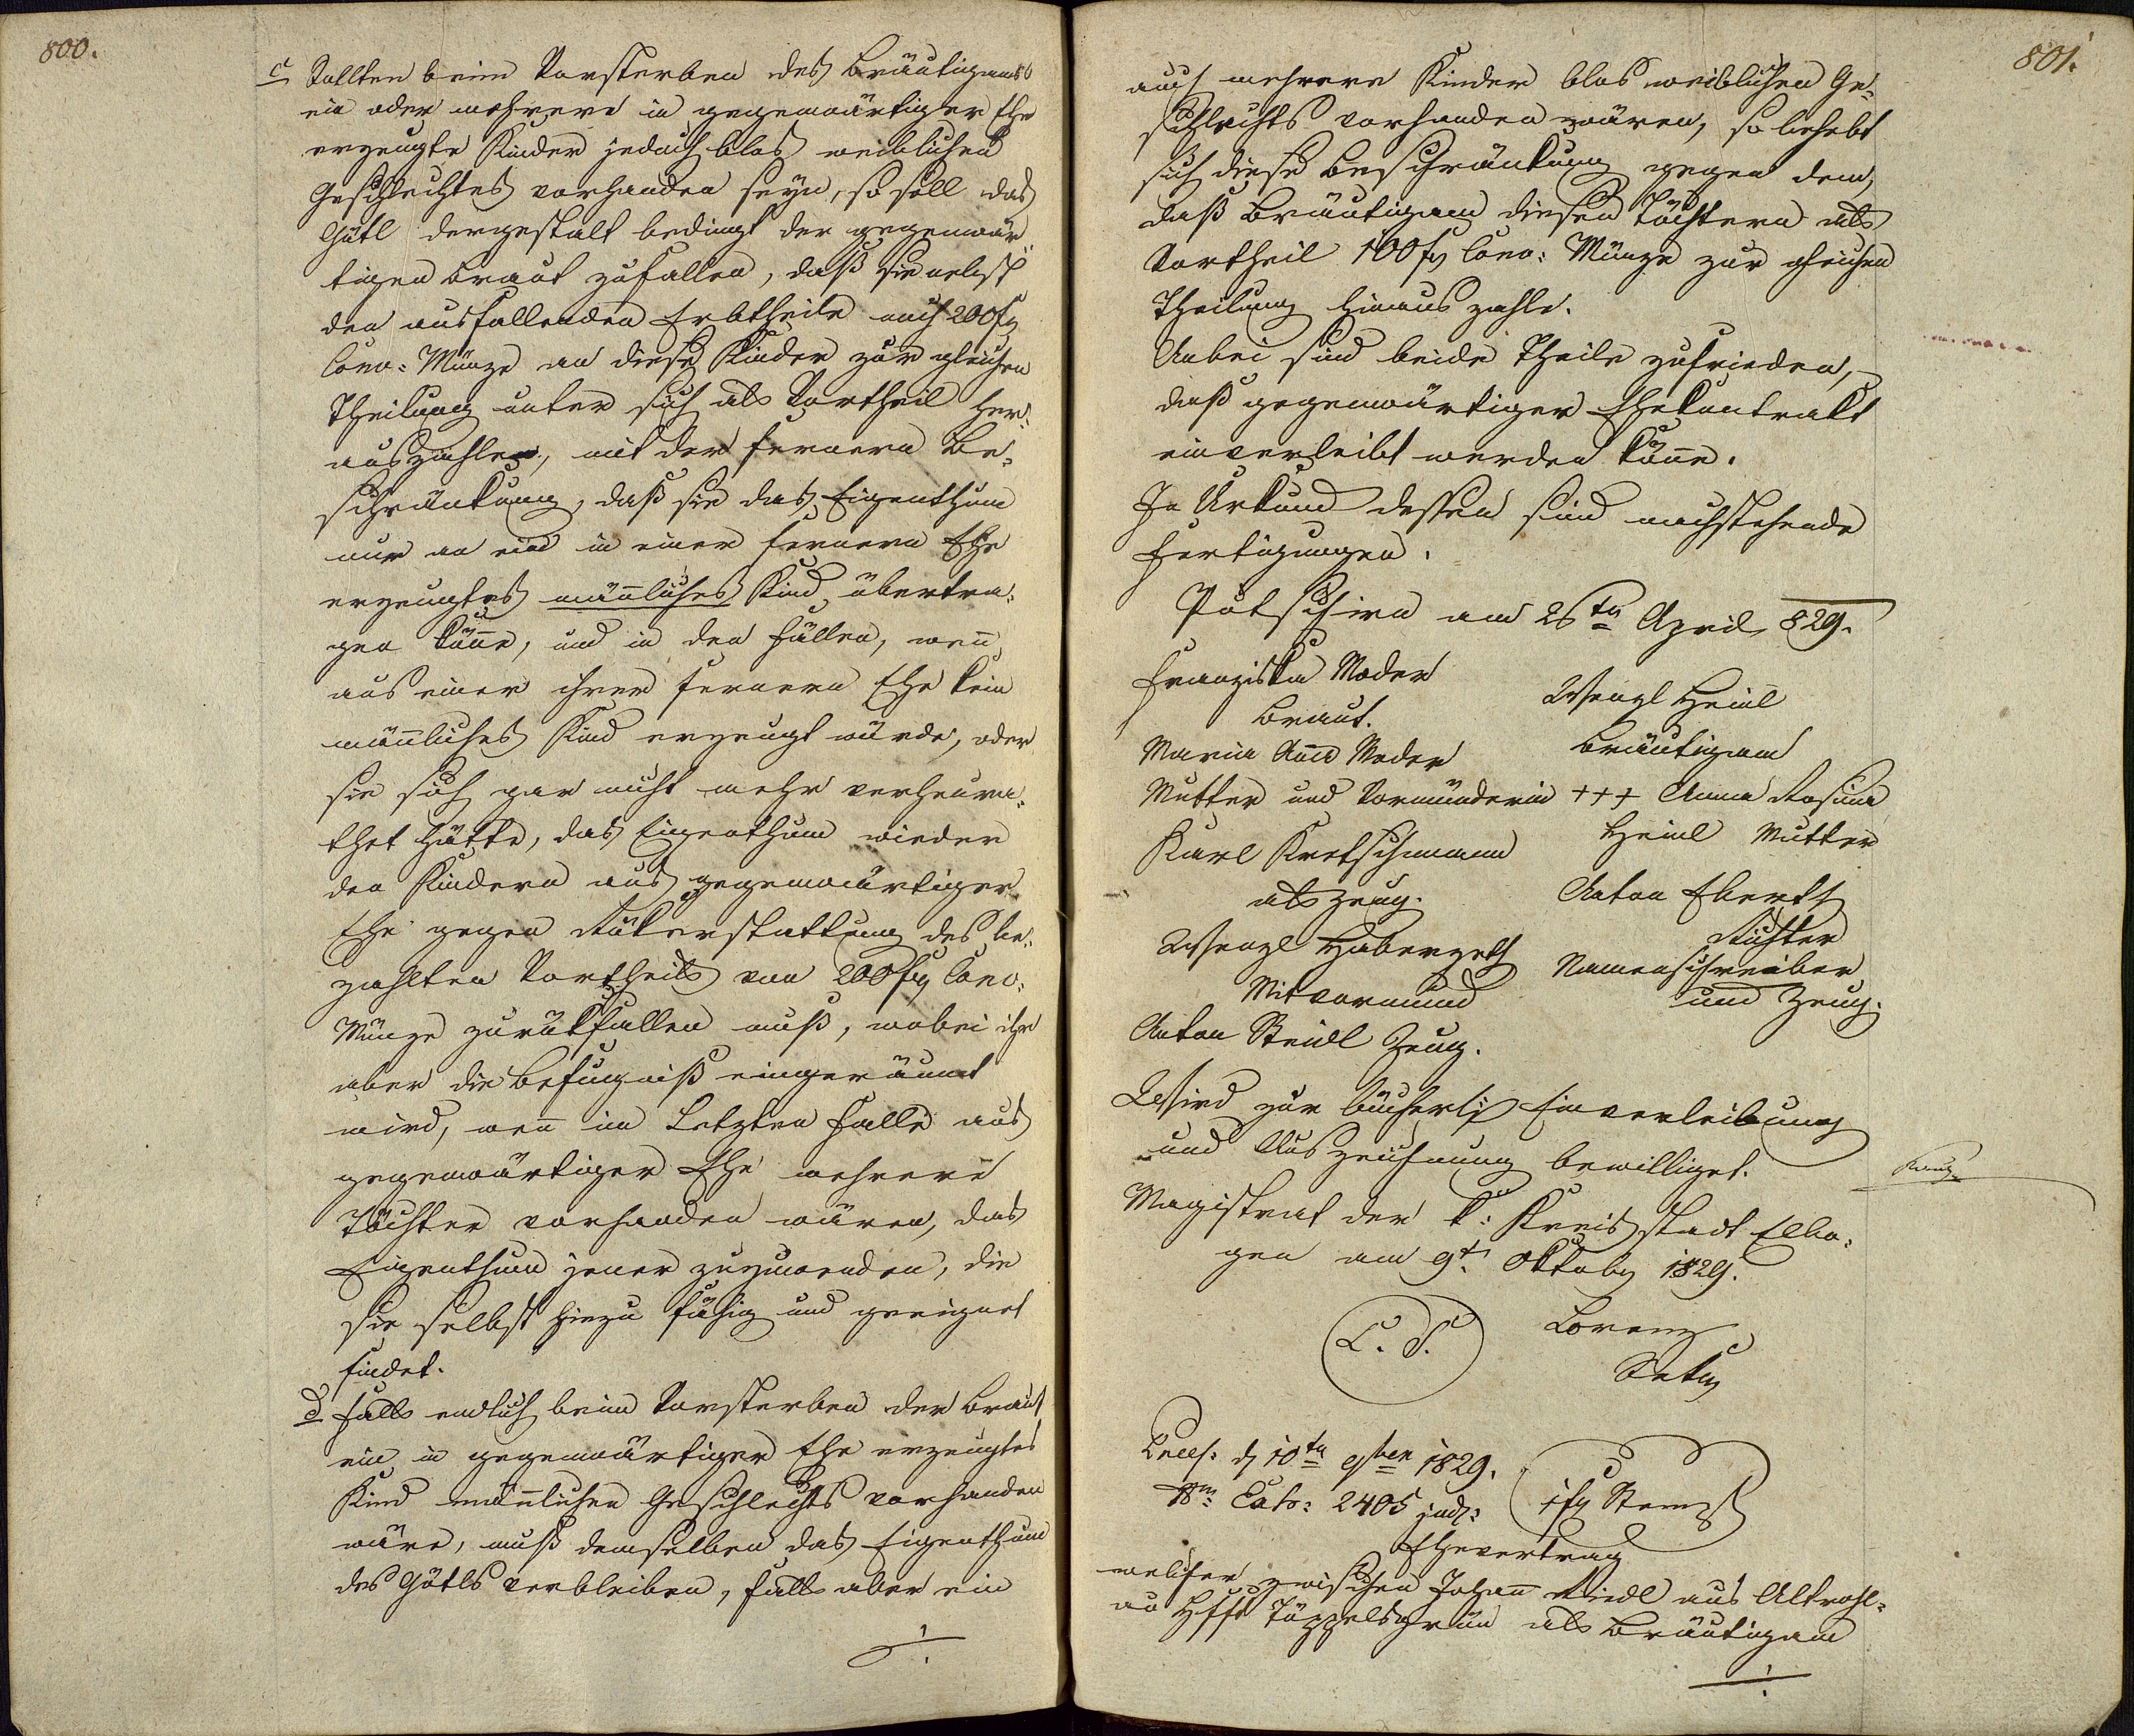 800.
c Sollten beim Vorsterben des Bräutigams
ein oder mehrere in gegenwärtiger Ehe
erzeugte Kinder jedoch blos weiblichen
Geschlechtes vorhanden seyn, so soll das
Gütl dergestalt bedingt der gegenwär
tigen Braut zufallen, daß sie nebst
den ausfallenden Erbtheile noch 200 f
Conv: Münze an diese Kinder zur gleichen
Theilung unter sich als Vortheil her:
auszahle, mit der fernern Be:
schränkung, daß sie das Eigenthum
nur an ein in einer fernern Ehe
erzeugtes mänliches Kind übertra:
gen köne, und in den Fällen, wen
aus einer ihrer fernern Ehe kein
mänliches Kind erzeugt würde, oder
sie sich gar nicht mehr verheura:
thet hätte, das Eigenthum wieder
den Kindern aus gegenwärtiger
Ehe gegen Rükerstattung des be:
zahlten Vortheils von 200 f Conv:
Münze zurükfallen muß, wobei ihr
aber die Befugniß eingeräumt
wird, wen im Letzten Falle aus
gegenwärtiger Ehe mehrere
Töchter vorhanden wären, das
Eigenthum jener zuzuwenden, die
sie selbst hiezu fähig und geeignet
findet.
d Falls endlich beim Vorsterben der Braut
ein in gegenwärtiger Ehe erzeugtes
Kind mänlichen Geschlechts vorhanden
wäre, muß demselben das Eigenthum
des Gütls verbleiben, falls aber ein
801.
auch mehrere Kinder blos weiblichen Ge:
schlechts vorhanden wären, so behebt
sich diese Beschränkung gegen dem,
daß Bräutigam diesen Töchtern als
Vortheil 100 f Conv: Münze zur gleichen
Theilung hinaus zahle.
Anbei sind beide Theile zufrieden,
daß gegenwärtiger Ehekontrakt
einverleibt werden köne.
In Urkund dessen sind nachstehende
Fertigungen.
Putschirn am 26tn April 829.
Franziska Moder
Braut.
Wenzl Heinl
Bräutigam
Maria Ana Moder
Mutter und Vormünderin
+++ Anna Rosina
Heinl Mutter
Karl Kretschmann
als Zeug.
Anton Ebert
Richter
Namensschreiber
und Zeug.
Wenzl Haberzetl
Mitvormund
Anton Steidl Zeug.
Wird zur bücherl Einverleibung
und Auszeichnung bewilliget.
Magistrat der k: Kreisstadt Elbo:
gen am 9t Oktob 1829.
L. S.
Lorenz
Sekr
Praes: d 10tn 9ber 1829.
Nm: Exh: 2405 jud:
1 f Stempl
Ehevertrag
welcher zwischen Johann Riedl aus Altrohl:
au Hfft Töppelsgrün als Bräutigam